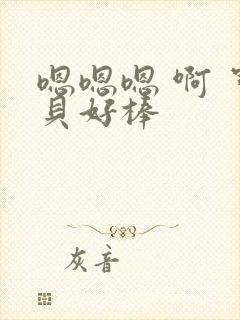 嗯嗯嗯 啊
贝好棒
灰音